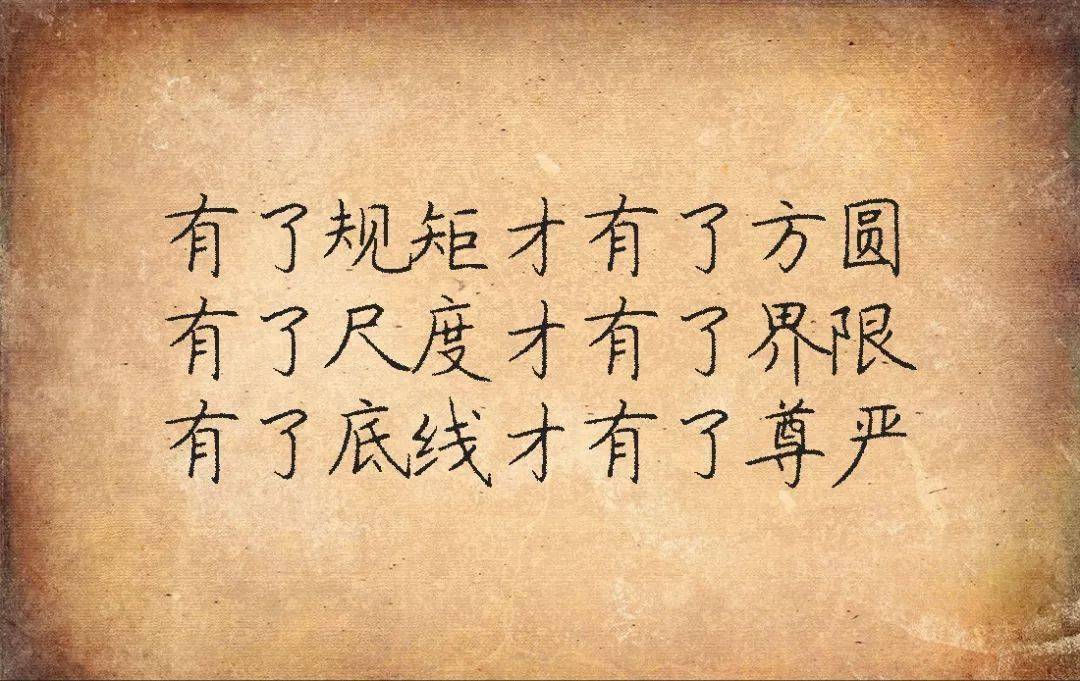 有了规矩才有了方圆
有了尺度才有了界限
有了底线才有了尊严